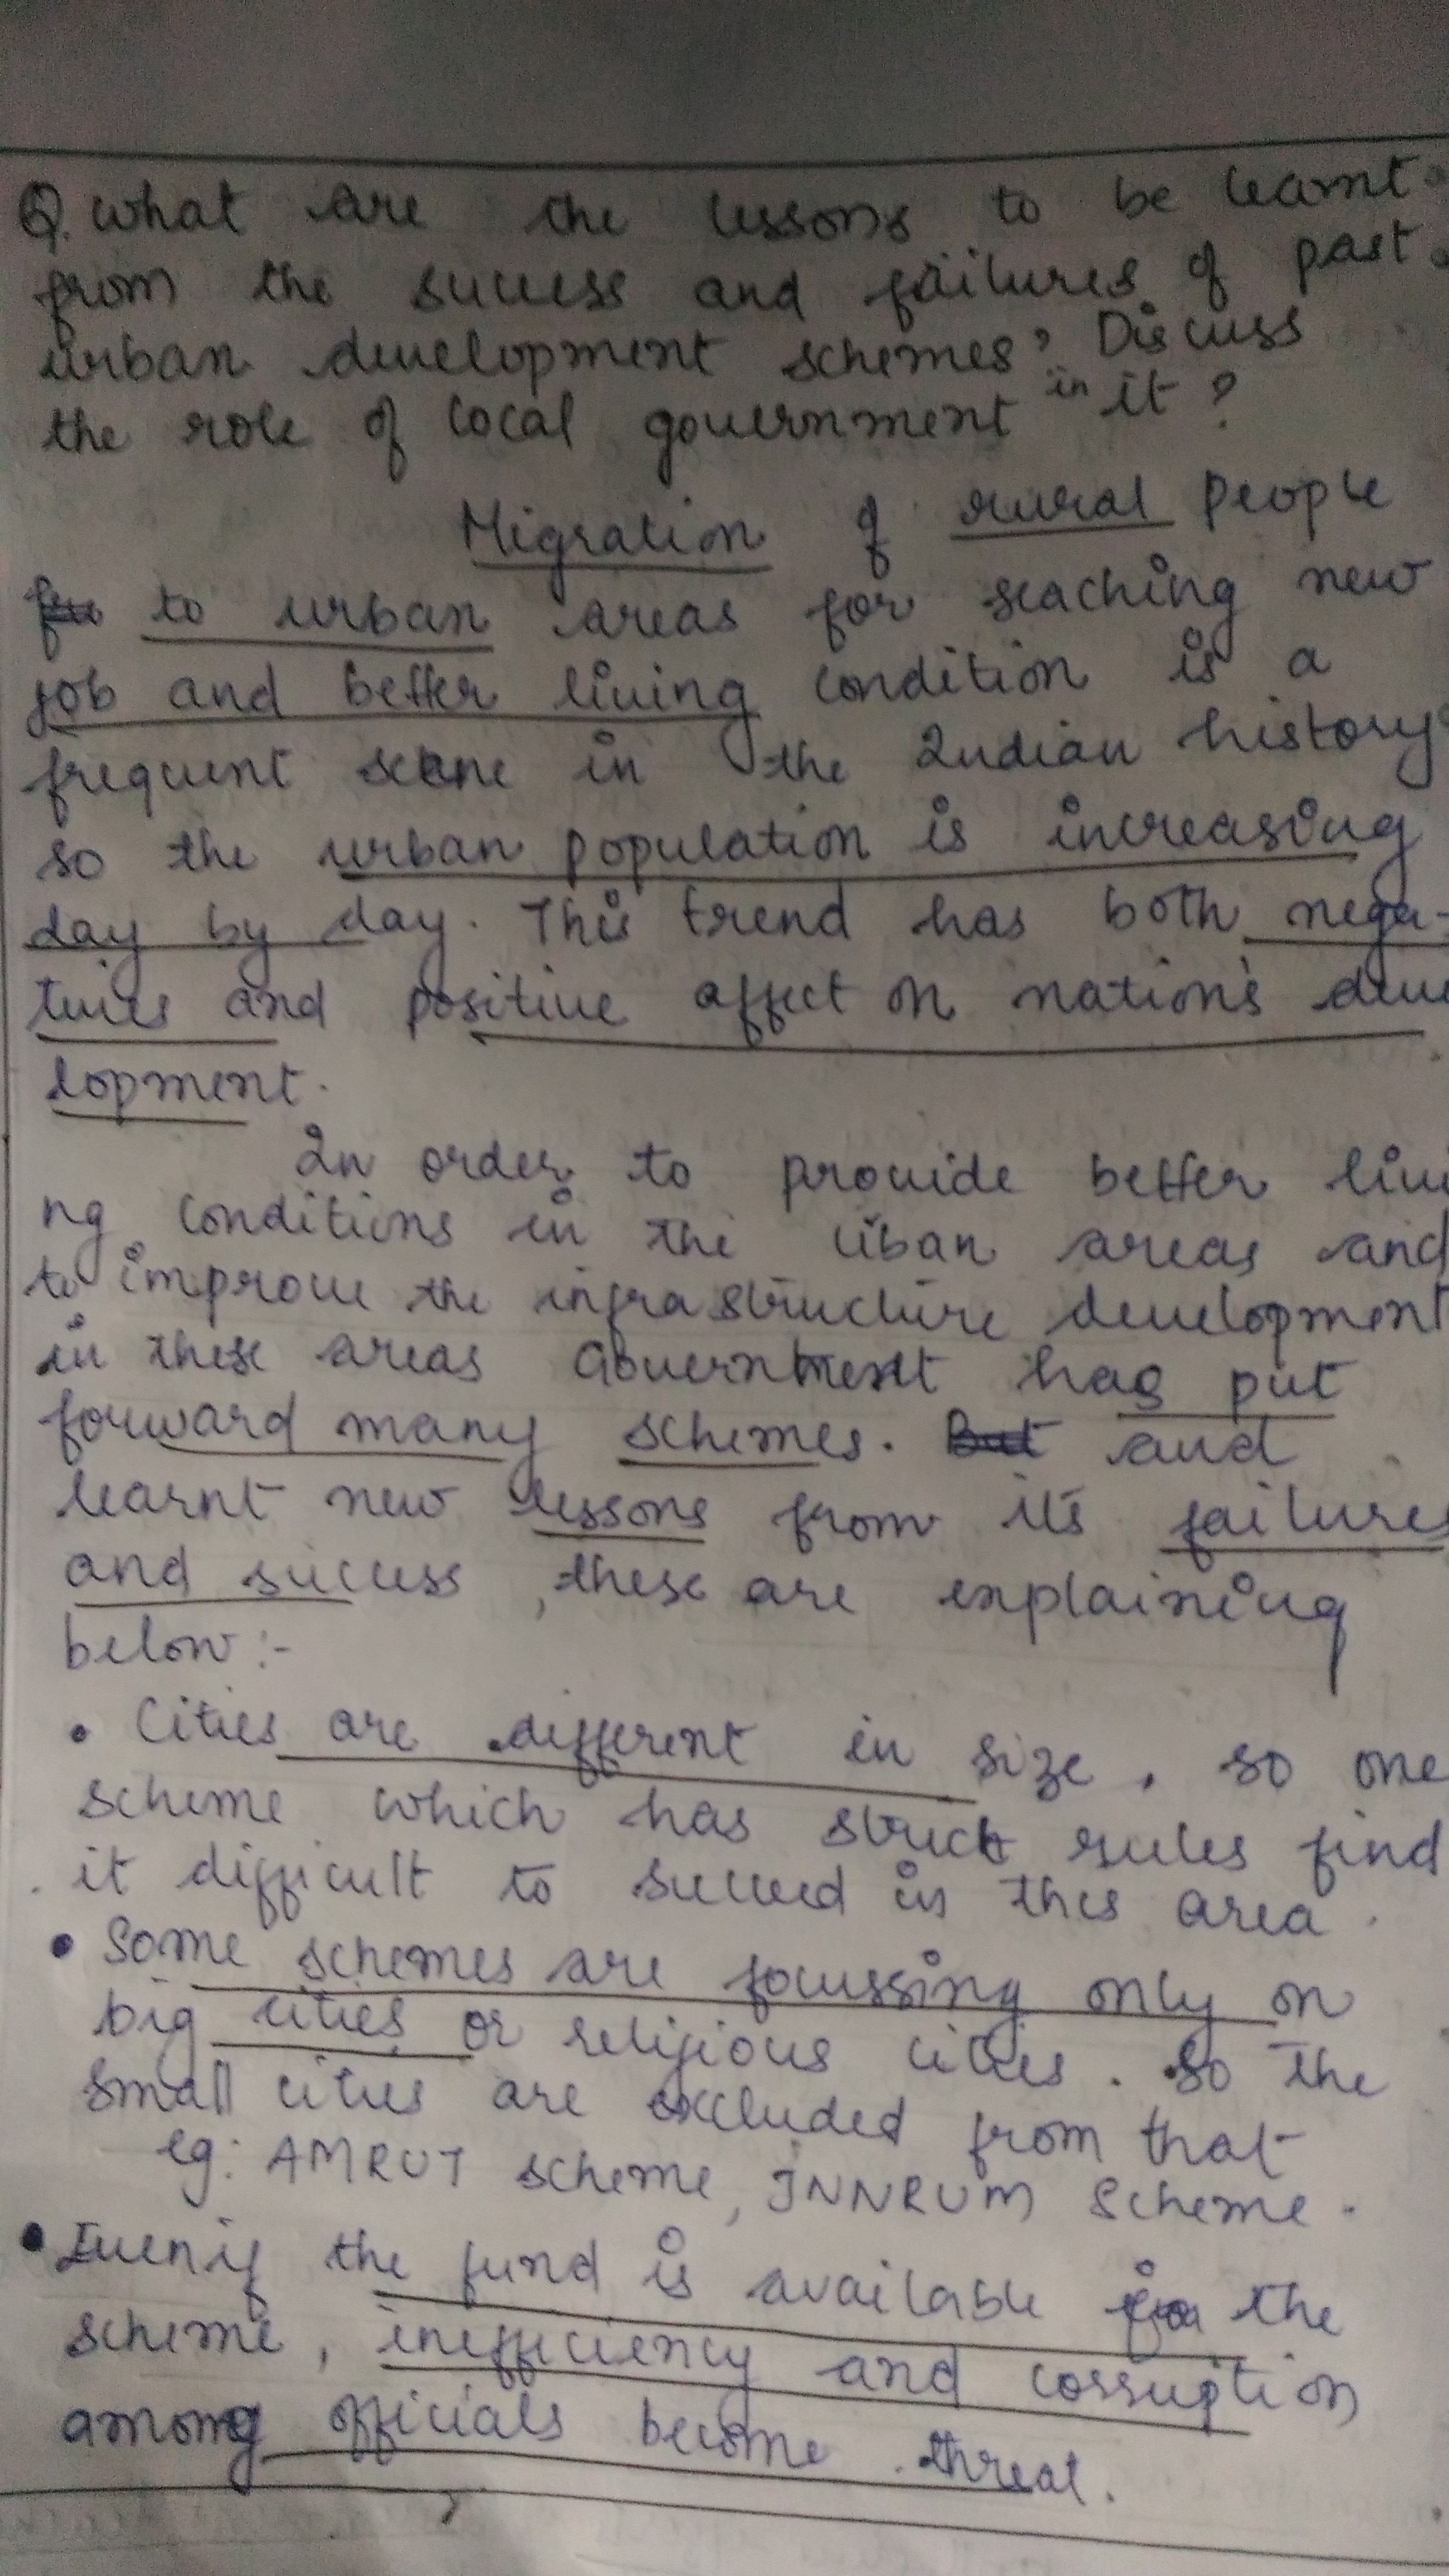 Q. what are the lessons to be learnt
from the success and failures of past
urban development schemes? Discuss
the role of local government in it ?
Migration of rural people
to urban areas for seaching new
job and better living condition is a
frequent scene in the Indian history
so the urban population is increasing
day by day. This trend has both nega-
tives and positive affect on nation's deve
lopment.
In order to provide better livi
ng conditions in the uban areas and
to improve the infrastructure development
in these areas Government has put
forward many schemes. But and
learnt new lessons from its failures
and success, these are explaining
below :-
• Cities are different in size, so one
scheme which has strict rules find
it difficult to succeed in this area.
• Some schemes are focussing only on
big cities or religious cities. so the
small cities are excluded from that
eg: AMRUT scheme, JNNRUM Scheme.
• Evenif the fund is available for the
scheme, inefficiency and corruption
among officials become threat.